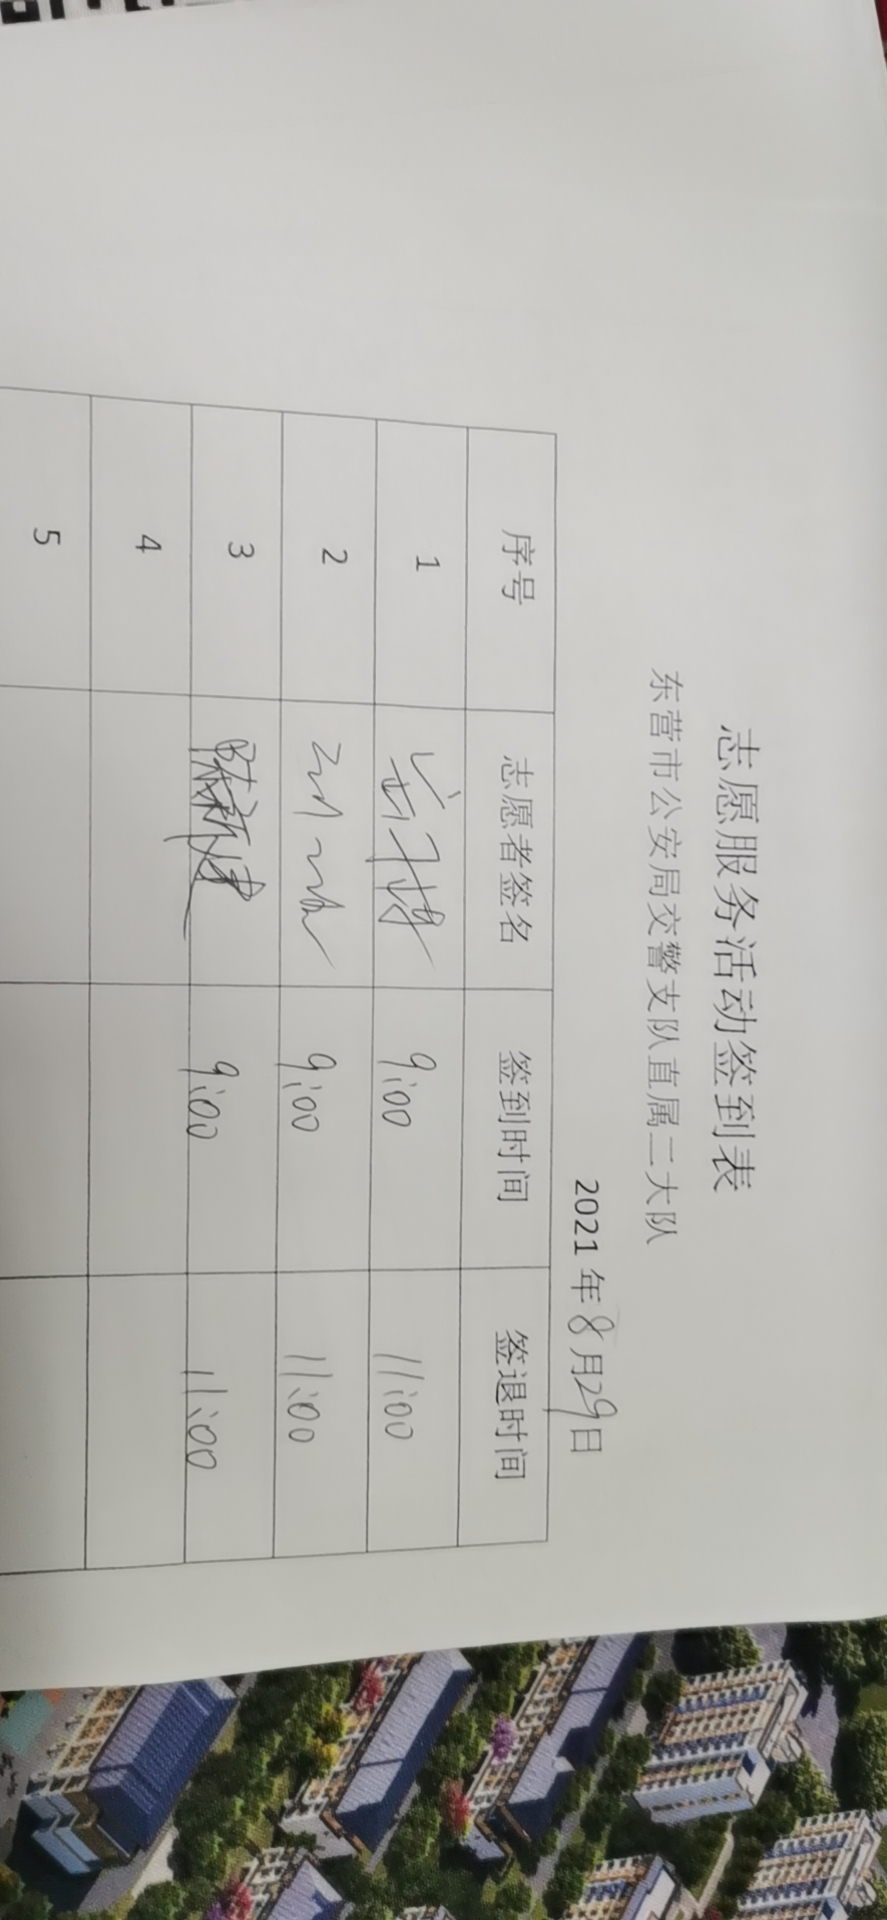 志愿服务活动签到表
东营市公安局交警支队直属二大队
2021 年 8 月 29 日
序号 志愿者签名 签到时间 签退时间
1 9:00 11:00
2 9:00 11:00
3 陈新建 9:00 11:00
4
5